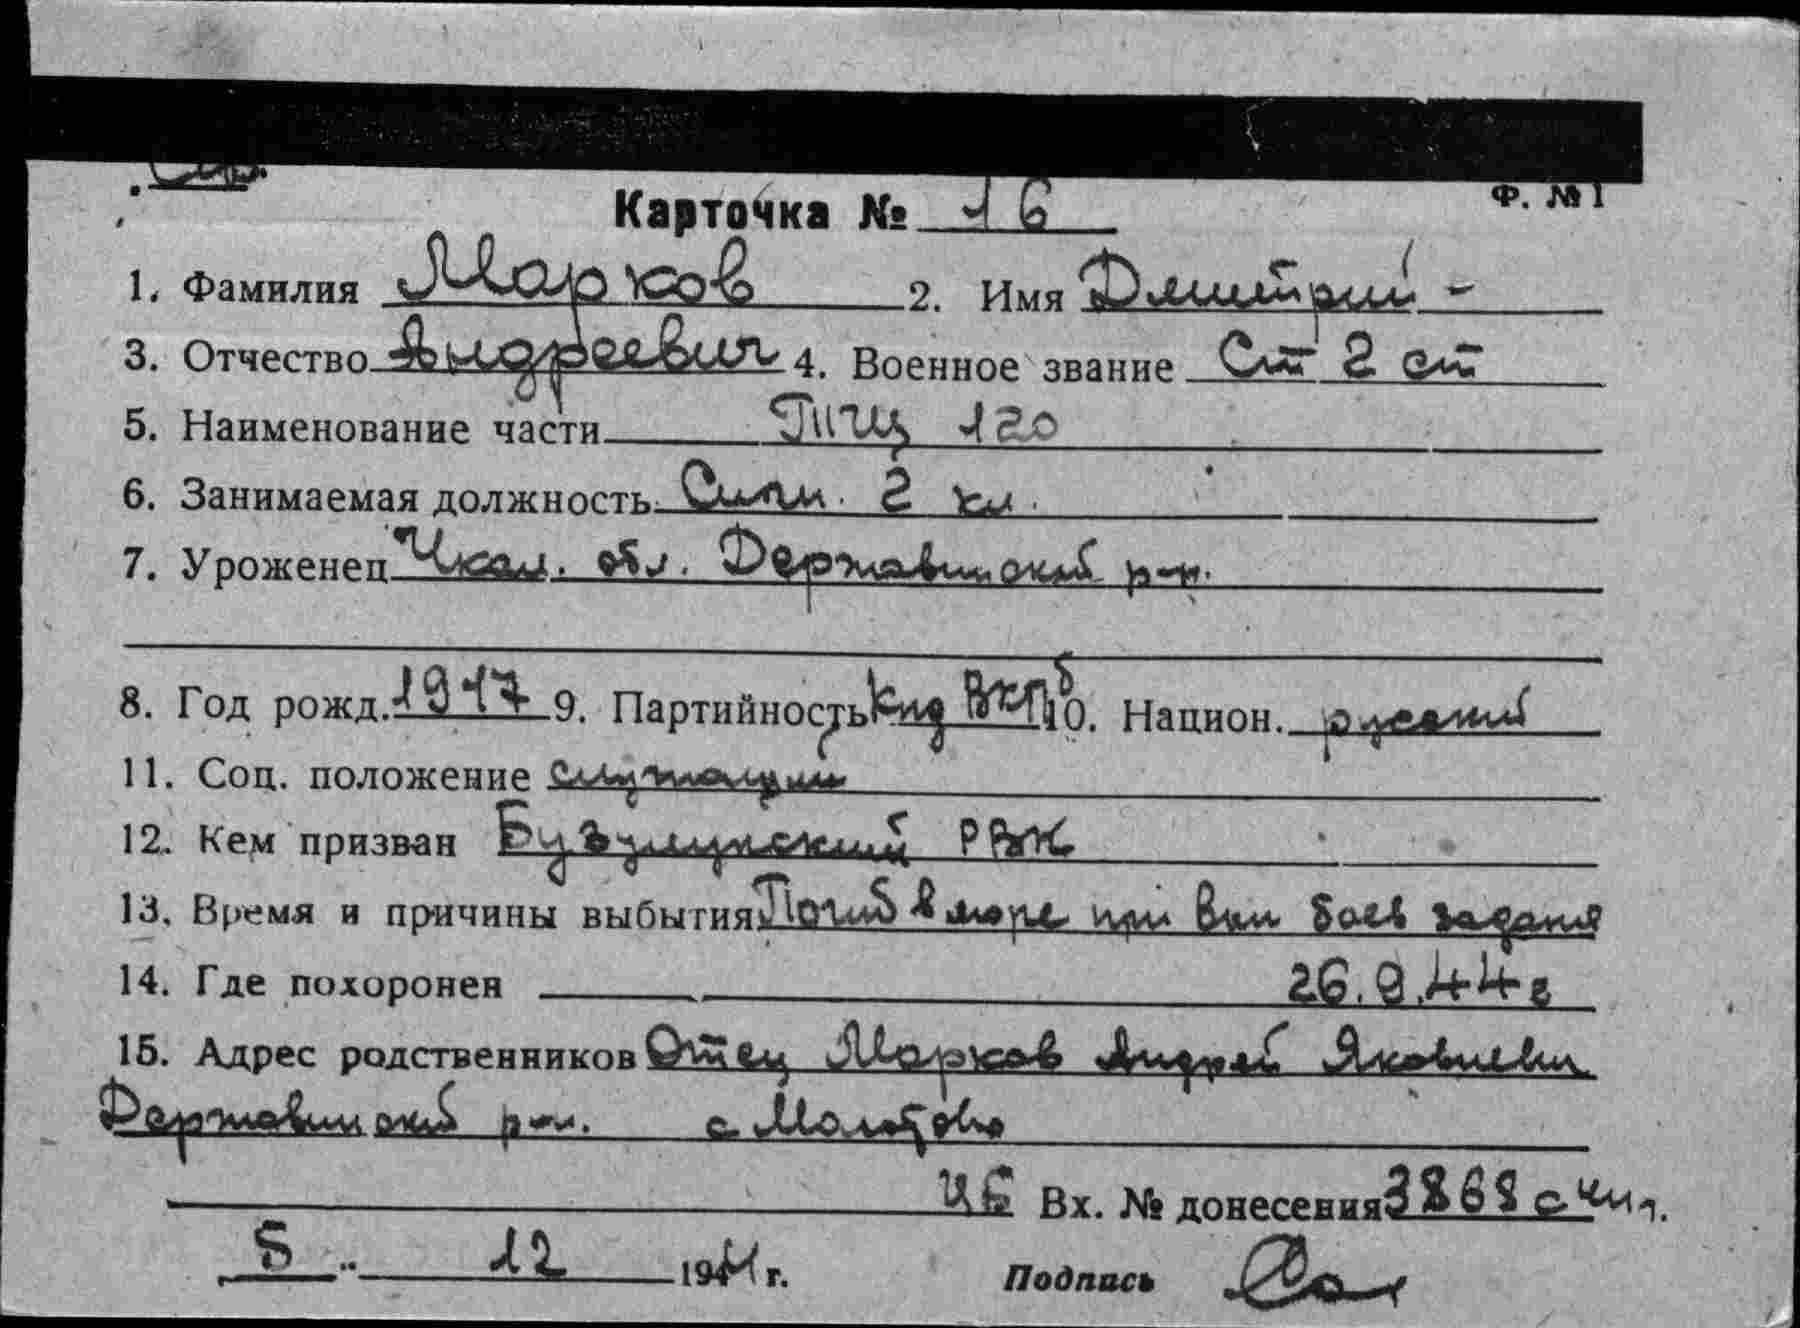 Карточка № 16 Ф. №1
1. Фамилия Марков 2. Имя Дмитрий -
3. Отчество Андреевич 4. Военное звание Ст 2 ст
5. Наименование части ТЩ 120
6. Занимаемая должность Сигн. 2 кл.
7. Уроженец Чкал. обл. Державинский р-н.
8. Год рожд. 1917 9. Партийность Кнд ВКПб 10. Национ. русский
11. Соц. положение служащий
12. Кем призван Бузулукский РВК
13. Время и причины выбытия Погиб в море при вып боев задания
14. Где похоронен 26.9.44г
15. Адрес родственников Отец Марков Андрей Яковлевич
Державинский р-н. с Молотово
Вх. № донесения 3868с
5 12 1944г. Подпись